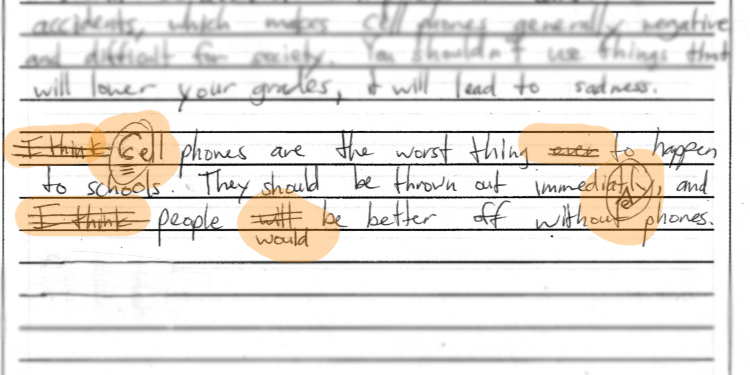 accidents, which makes cell phones generally negative
and difficult for society. You shouldn't use things that
will lower your grades, it will lead to sadness.
I think Cell phones are the worst thing ever to happen
to schools. They should be thrown out immediatly, and
e
I think people will be better off without phones.
would